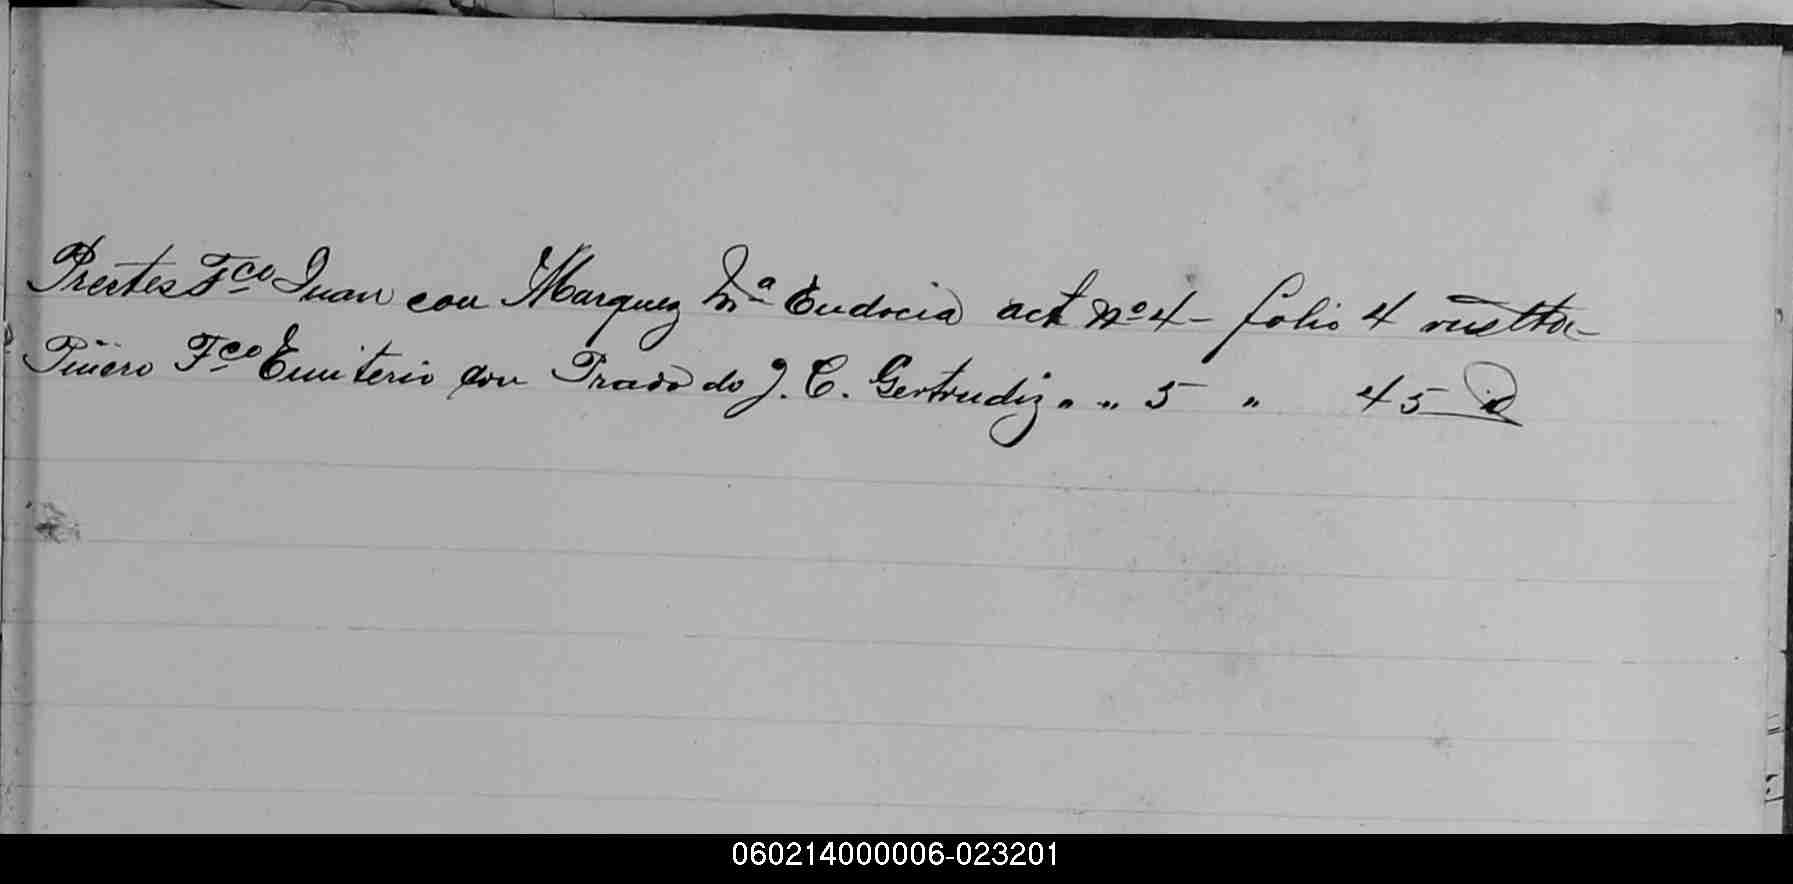 Prestes Fco Juan con Marquez Ma Eudocia act No 4 - folio 4 vuelta
Piñero Fco Emiterio con Prado do J. C. Gertrudiz " " 5 " 45 id
060214000006-023201